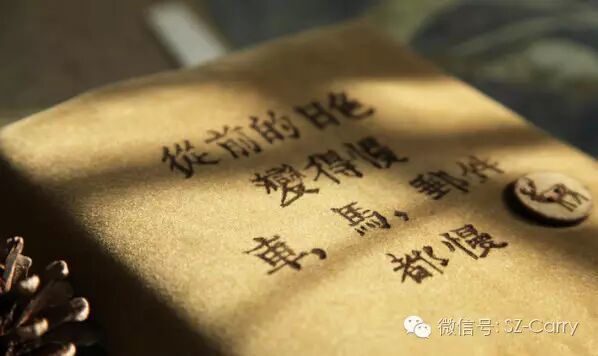 從前的日色
變得慢
車，馬、郵件
都慢
微信号: SZ-Carry